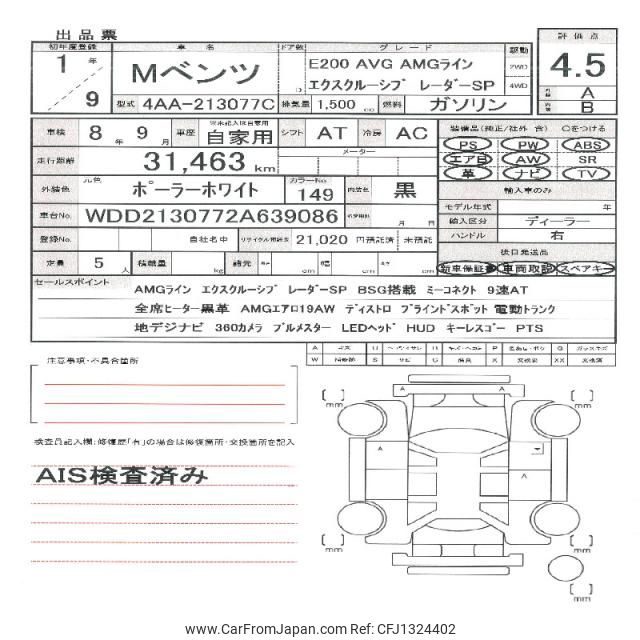 出品票
初年度登録 車名 ドア数 グレード 駆動 評価点
1年 Mベンツ D E200 AVG AMGライン 2WD 4.5
9 エクスクルーシブ レーダーSP 4WD A
型式 4AA-213077C 排気量 1,500 cc 燃料 ガソリン B
車検 8年 9月 車歴 自家用 シフト AT 冷房 AC 装備品(純正/社外 含) ○をつける
走行距離 31,463 km メーター PS PW ABS
エアB AW SR
革 ナビ TV
外装色 元色 ポーラーホワイト カラーNo. 149 内装色 黒 輸入車のみ
車台No. WDD2130772A639086 月 日 モデル年式 年
輸入区分 ディーラー
登録No. 自社名中 リサイクル預託金 21,020 円預託済 未預託 ハンドル 右
定員 5人 積載量 kg 諸元 長さ cm 幅 cm 高さ cm 後日発送品
新車保証書 車両取説 スペアキー
セールスポイント
AMGライン エクスクルーシブ レーダーSP BSG搭載 ミーコネクト 9速AT
全席ヒーター黒革 AMGエアロ19AW ディストロ ブラインドスポット 電動トランク
地デジナビ 360カメラ ブルメスター LEDヘッド HUD キーレスゴー PTS
注意事項・不具合箇所
検査員記入欄:修復歴「有」の場合は修復箇所・交換箇所を記入
AIS検査済み
A
A
A
A
mm
mm
mm
mm
mm
www.CarFromJapan.com Ref: CFJ1324402